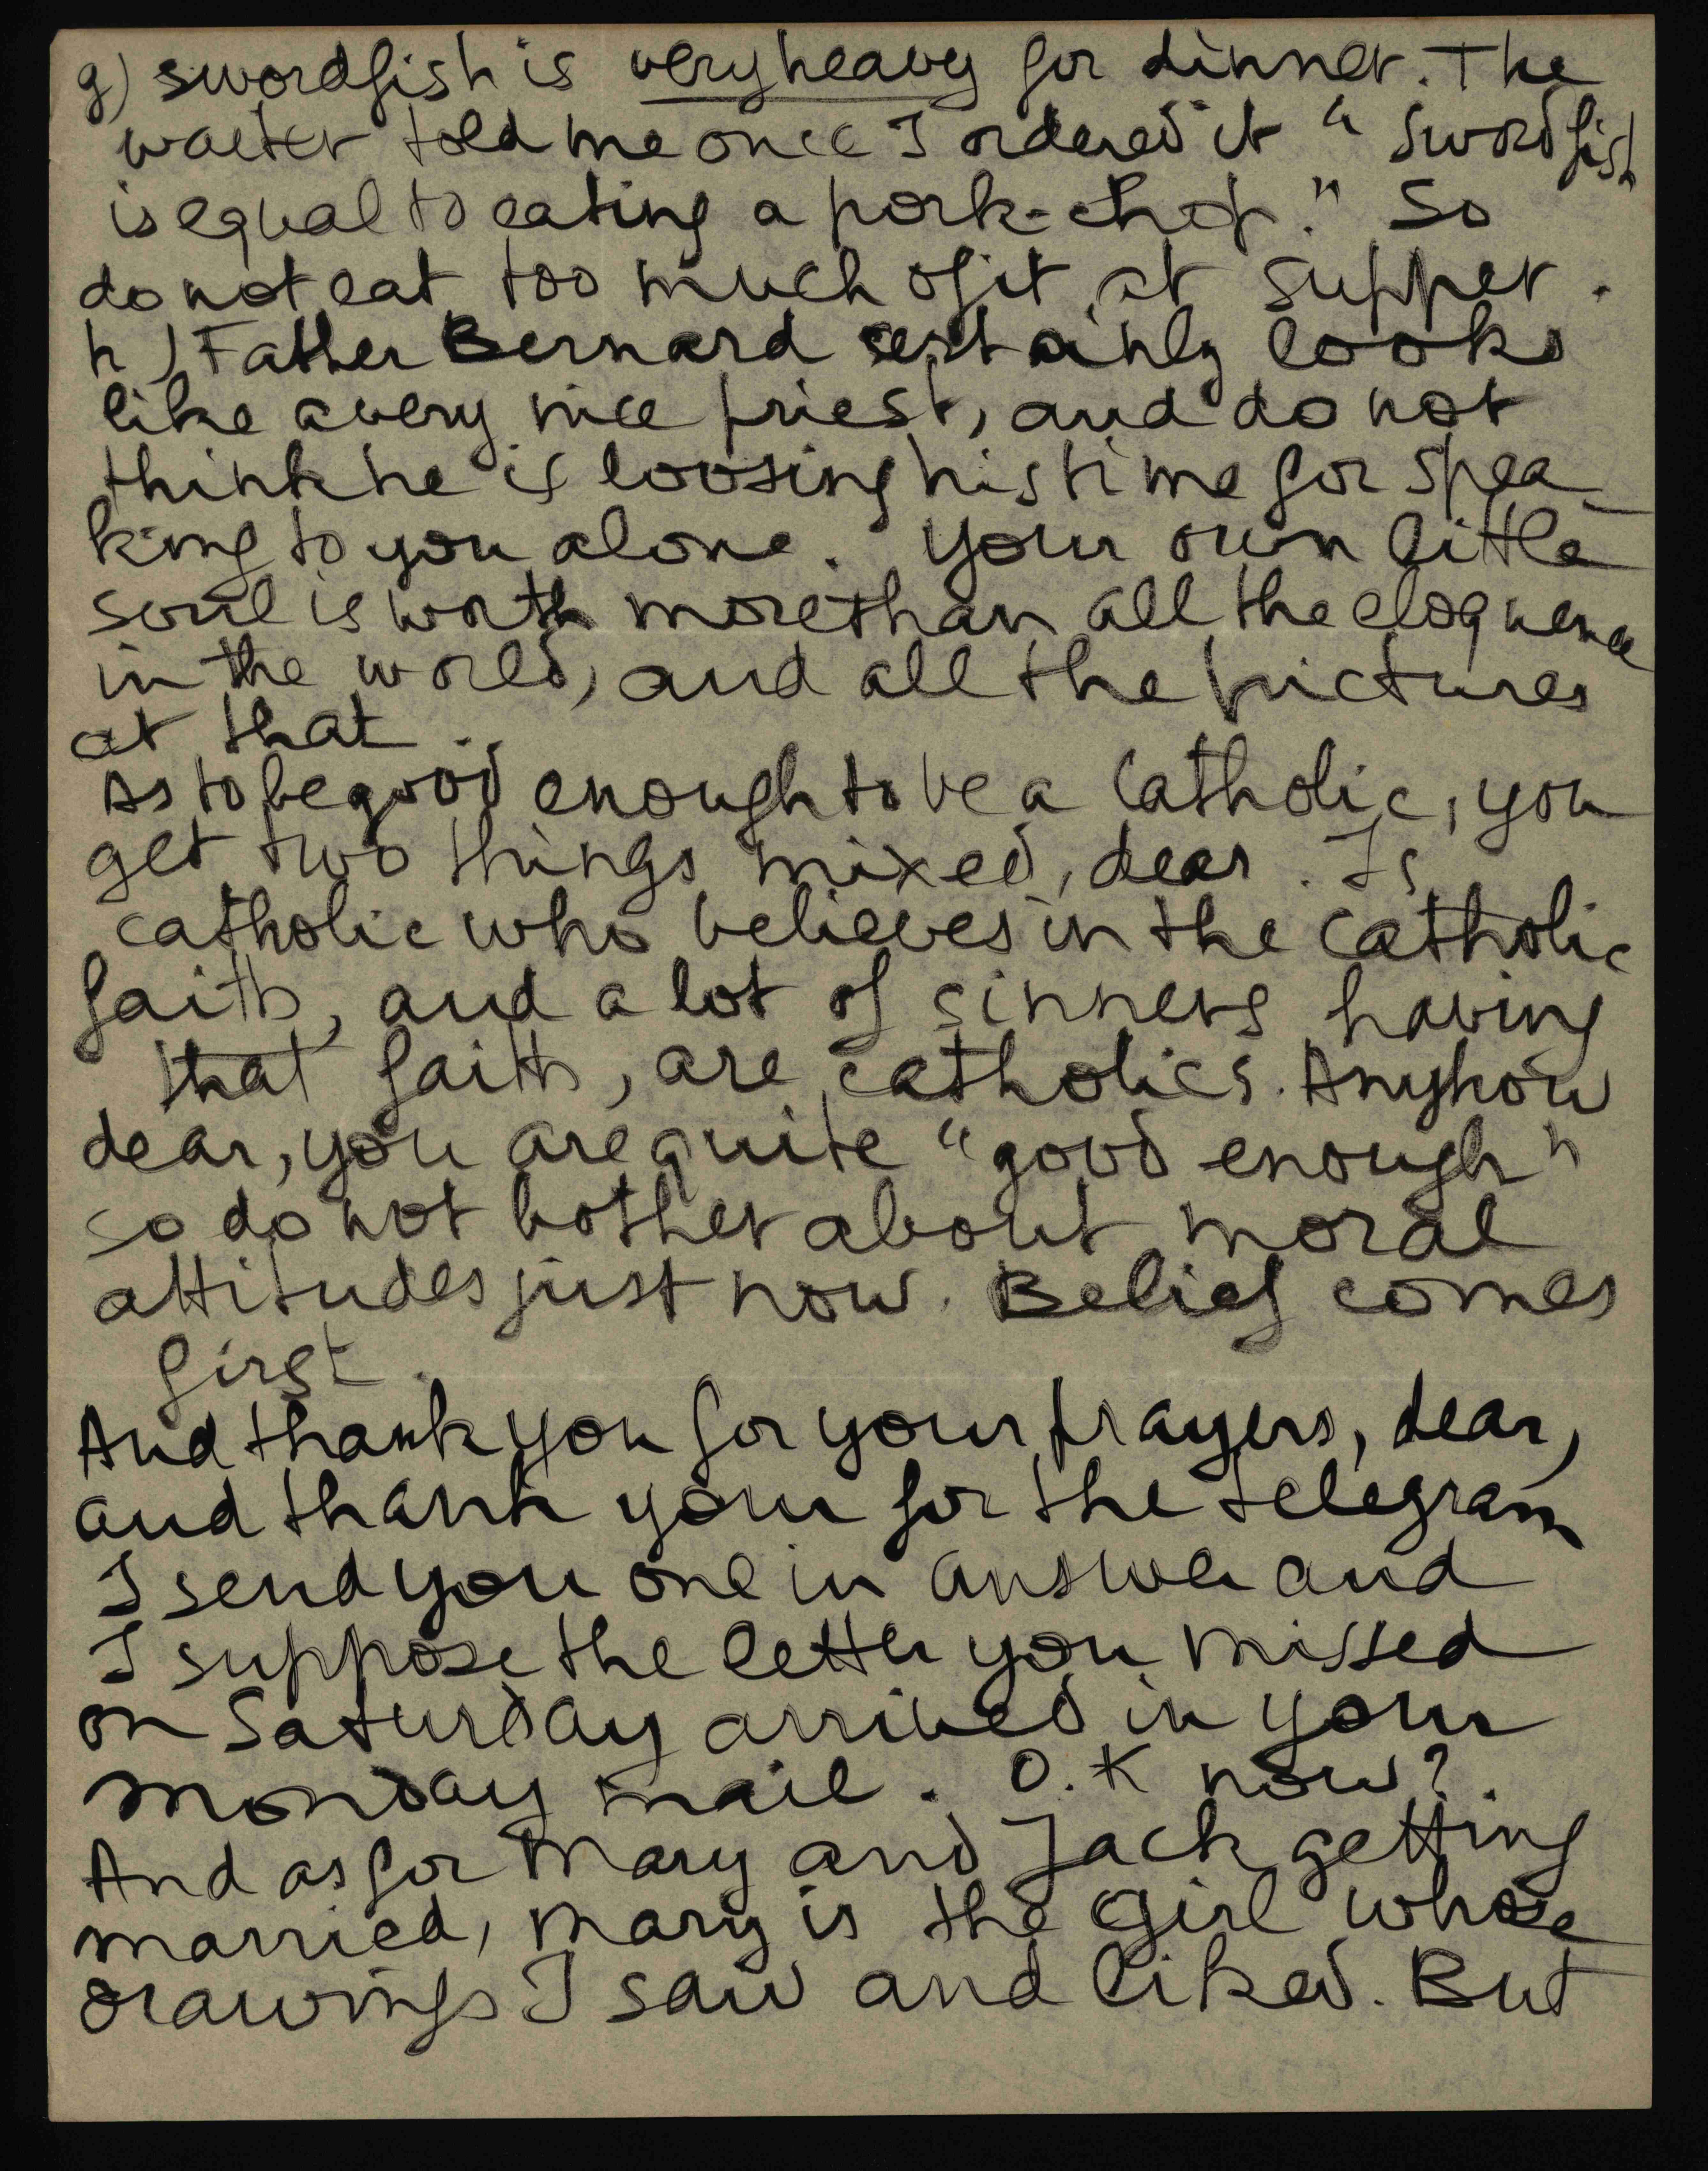 g) swordfish is very heavy for dinner. The
waiter told me once I ordered it "Swordfish
is equal to eating a pork-chop." So
do not eat too much of it at supper.
h) Father Bernard certainly looks
like a very nice priest, and do not
think he is loosing his time for spea_
king to you alone. Your own little
soul is worth more than all the eloquence
in the world, and all the pictures
at that.
As to be good enough to be a Catholic, you
get two things mixed, dear. Is
catholic who believes in the catholic
faith, and a lot of sinners having
that faith, are catholics. Anyhow
dear, you are quite "good enough"
so do not bother about moral
attitudes just now. Belief comes
first.
And thank you for your prayers, dear,
and thank you for the telegram
I send you one in answer and
I suppose the letter you missed
on Saturday arrived in your
monday mail. O.K now?
And as for Mary and Jack getting
married, Mary is the girl whose
drawings I saw and liked. But